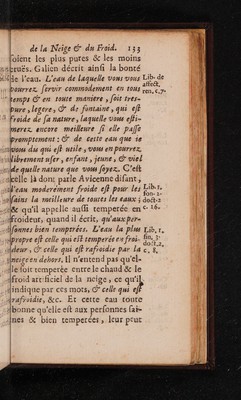 de la Neige & du Froid. 133
soient les plus pures & les moins
cruës. Galien décrit ainsi la bonté
de l'eau. L'eau de laquelle vous vous
pourrez servir commodement en tous
temps & en toute maniere, soit tres-
pure, legere, & de fontaine, qui est
froide de sa nature, laquelle vous esti-
merez encore meilleure si elle passe
promptement; & de cette eau que je
vous du qui est utile, vous en pourrez
librement user, enfant, jeune, & viel
de quelle nature que vous soyez. C'est
celle là dont parle Avicenne disant,
l'eau moderément froide est pour les
sains la meilleure de toutes les eaux;
& qu'il appelle aussi temperée en
froideur, quand il écrit, qu'aux per-
sonnes bien temperées. L'eau la plus
propre est celle qui est temperée en froi-
deur, & celle qui est rafroidie par la
neige en dehors. Il n'entend pas qu'el-
le soit temperée entre le chaud & le
froid artificiel de la neige, ce qu'il
indique par ces mots, & celle qui est
rafroidie, &c. Et cette eau toute
bonne qu'elle est aux personnes sai-
nes & bien temperées, leur peut
Lib. de
affect.
ren. c. 7.
Lib. 1.
fen. 2.
doct. 2
c. 16.
Lib. 1.
fin. 3.
doct. 2,
c. 8.